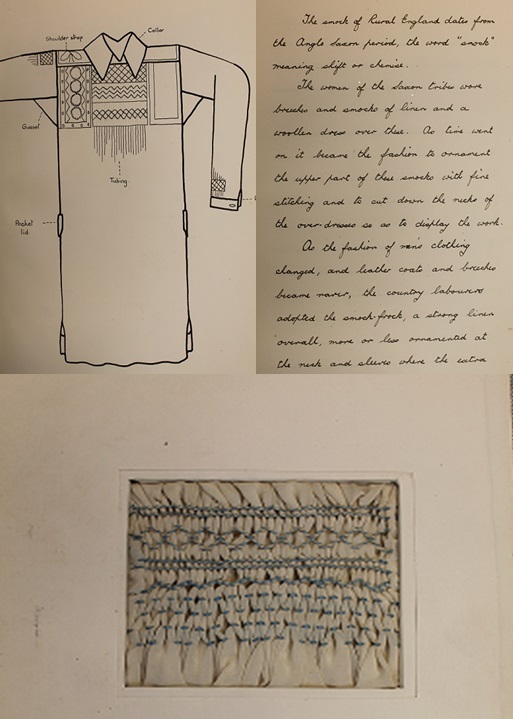 Shoulder strap
Collar
Gusset
Tubing
Pocket
lid
The smock of Rural England dates from
the Anglo Saxon period, the word "smock"
meaning shift or chemise.
The women of the Saxon tribes wore
breeches and smocks of linen and a
woollen dress over these. As time went
on it became the fashion to ornament
the upper part of these smocks with fine
stitching and to cut down the necks of
the over-dresses so as to display the work.
As the fashion of men's clothing
changed, and leather coats and breeches
became rarer, the country labourers
adopted the smock-frock, a strong linen
overall, more or less ornamented at
the neck and sleeves where the extra